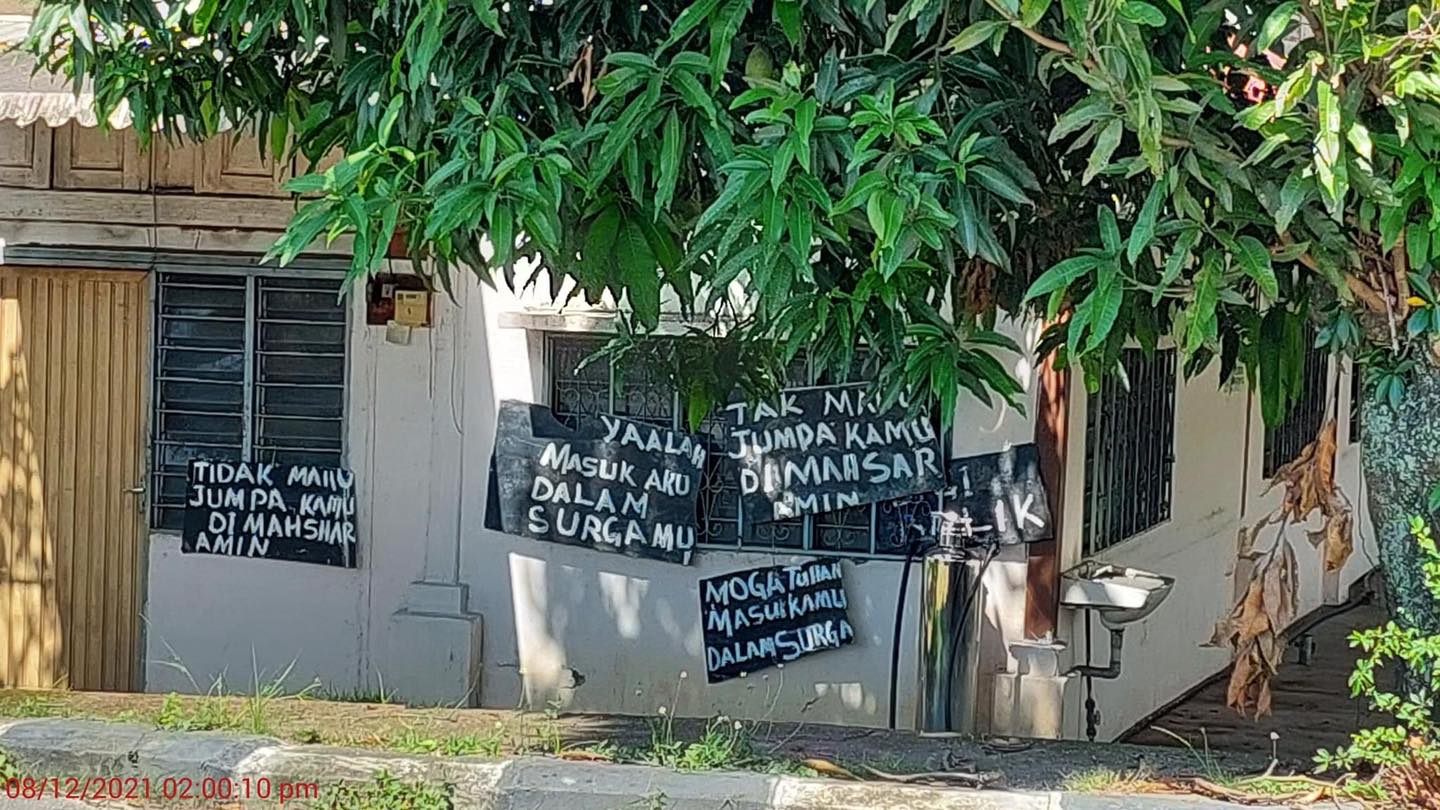 TIDAK MAHU
JUMPA KAMU
DI MAHSHAR
AMIN
YAALAH
MASUK AKU
DALAM
SURGAMU
TAK MAHU
JUMPA KAMU
DI MAHSAR
AMIN
MOGA TUHAN
MASUKKAMU
DALAM SURGA
08/12/2021 02:00:10 pm